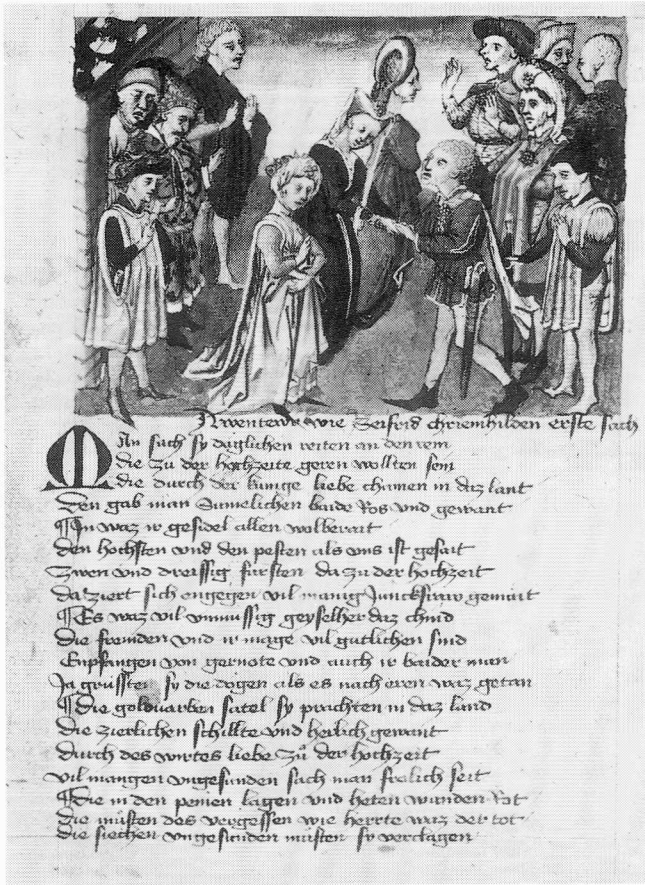 Abentewr wie Seifrid chriemhilden erste sach
Man sach sy daglichen reiten an den rein
die zu der hochzeite geren wollten sein
die durch der kunige liebe chamen in daz lant
Den gab man sumelichen baide Ros vnd gewant
¶ In waz ir gesidel allen wolberait
den hochsten vnd den pesten als vns ist gesait
Zwen vnd dreissig fursten da zu der hochzeit
da ziert sich engegen vil manig Junckfraw gemait
¶ Es waz vil vnmussig geyselher daz chind
die fremden vnd ir mage vil gutlichen sind
Enpfangen von gernote vnd auch ir baider man
Ja grussten sy die degen als es nach eren waz getan
¶ Die goldvarben satel sy prachten in daz land
die zierlichen schillte vnd herlich gewant
durch des wirtes liebe zů der hochzeit
vil mangen vngesunden sach man frolich seit
¶ Die in den petten lagen vnd heten wunden Rot
die můsten des vergessen wie herrte waz der tot
die siechen vngesunden můsten sy verclagen